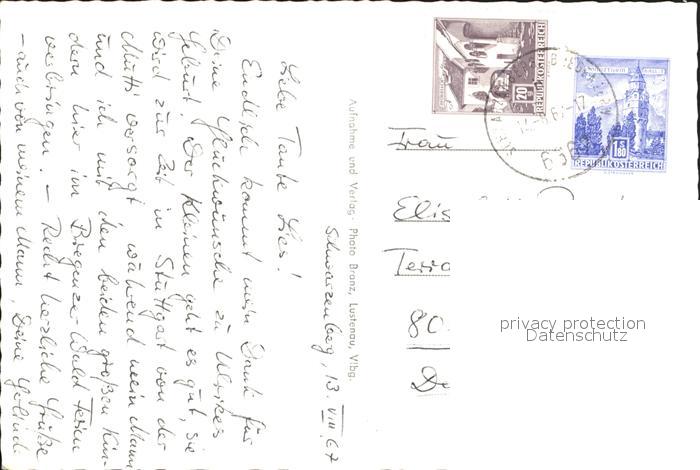 Schwarzenberg, 13. VIII. 67
Liebe Tante Lies!
Endlich kommt mein Dank für
Deine Glückwünsche zu Ulrikes
Geburt. Der Kleinen geht es gut, sie
wird zur Zeit in Stuttgart von der
Mutti versorgt während mein Mann
und ich mit den beiden großen Kin-
dern hier im Bregenzer-Wald Ferien
verbringen. - Recht herzliche Grüße
- auch von meinem Mann, Deine
Aufnahme und Verlag: Photo Branz, Lustenau, Vlbg.
REPUBLIK ÖSTERREICH
20
REPUBLIK ÖSTERREICH
1.80
Frau
Elis
Terra
80
De
privacy protection
Datenschutz